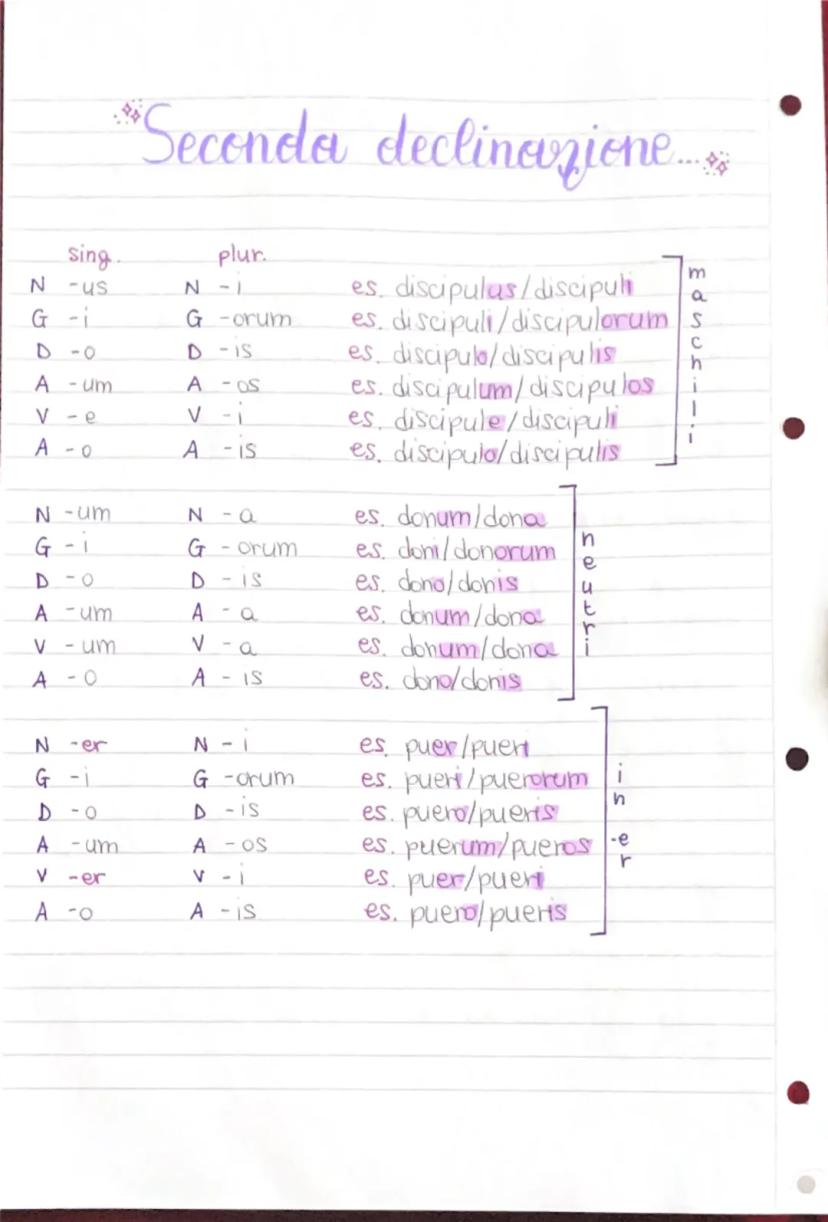 Seconda declinazione...
sing. plur.
N -us N -i es. discipulus/discipuli
G -i G -orum es. discipuli/discipulorum
D -o D -is es. discipulo/discipulis
A -um A -os es. discipulum/discipulos
V -e V -i es. discipule/discipuli
A -o A -is es. discipulo/discipulis
maschili
N -um N -a es. donum/dona
G -i G -orum es. doni/donorum
D -o D -is es. dono/donis
A -um A -a es. donum/dona
V -um V -a es. donum/dona
A -o A -is es. dono/donis
neutri
N -er N -i es. puer/pueri
G -i G -orum es. pueri/puerorum
D -o D -is es. puero/pueris
A -um A -os es. puerum/pueros
V -er V -i es. puer/pueri
A -o A -is es. puero/pueris
in -er